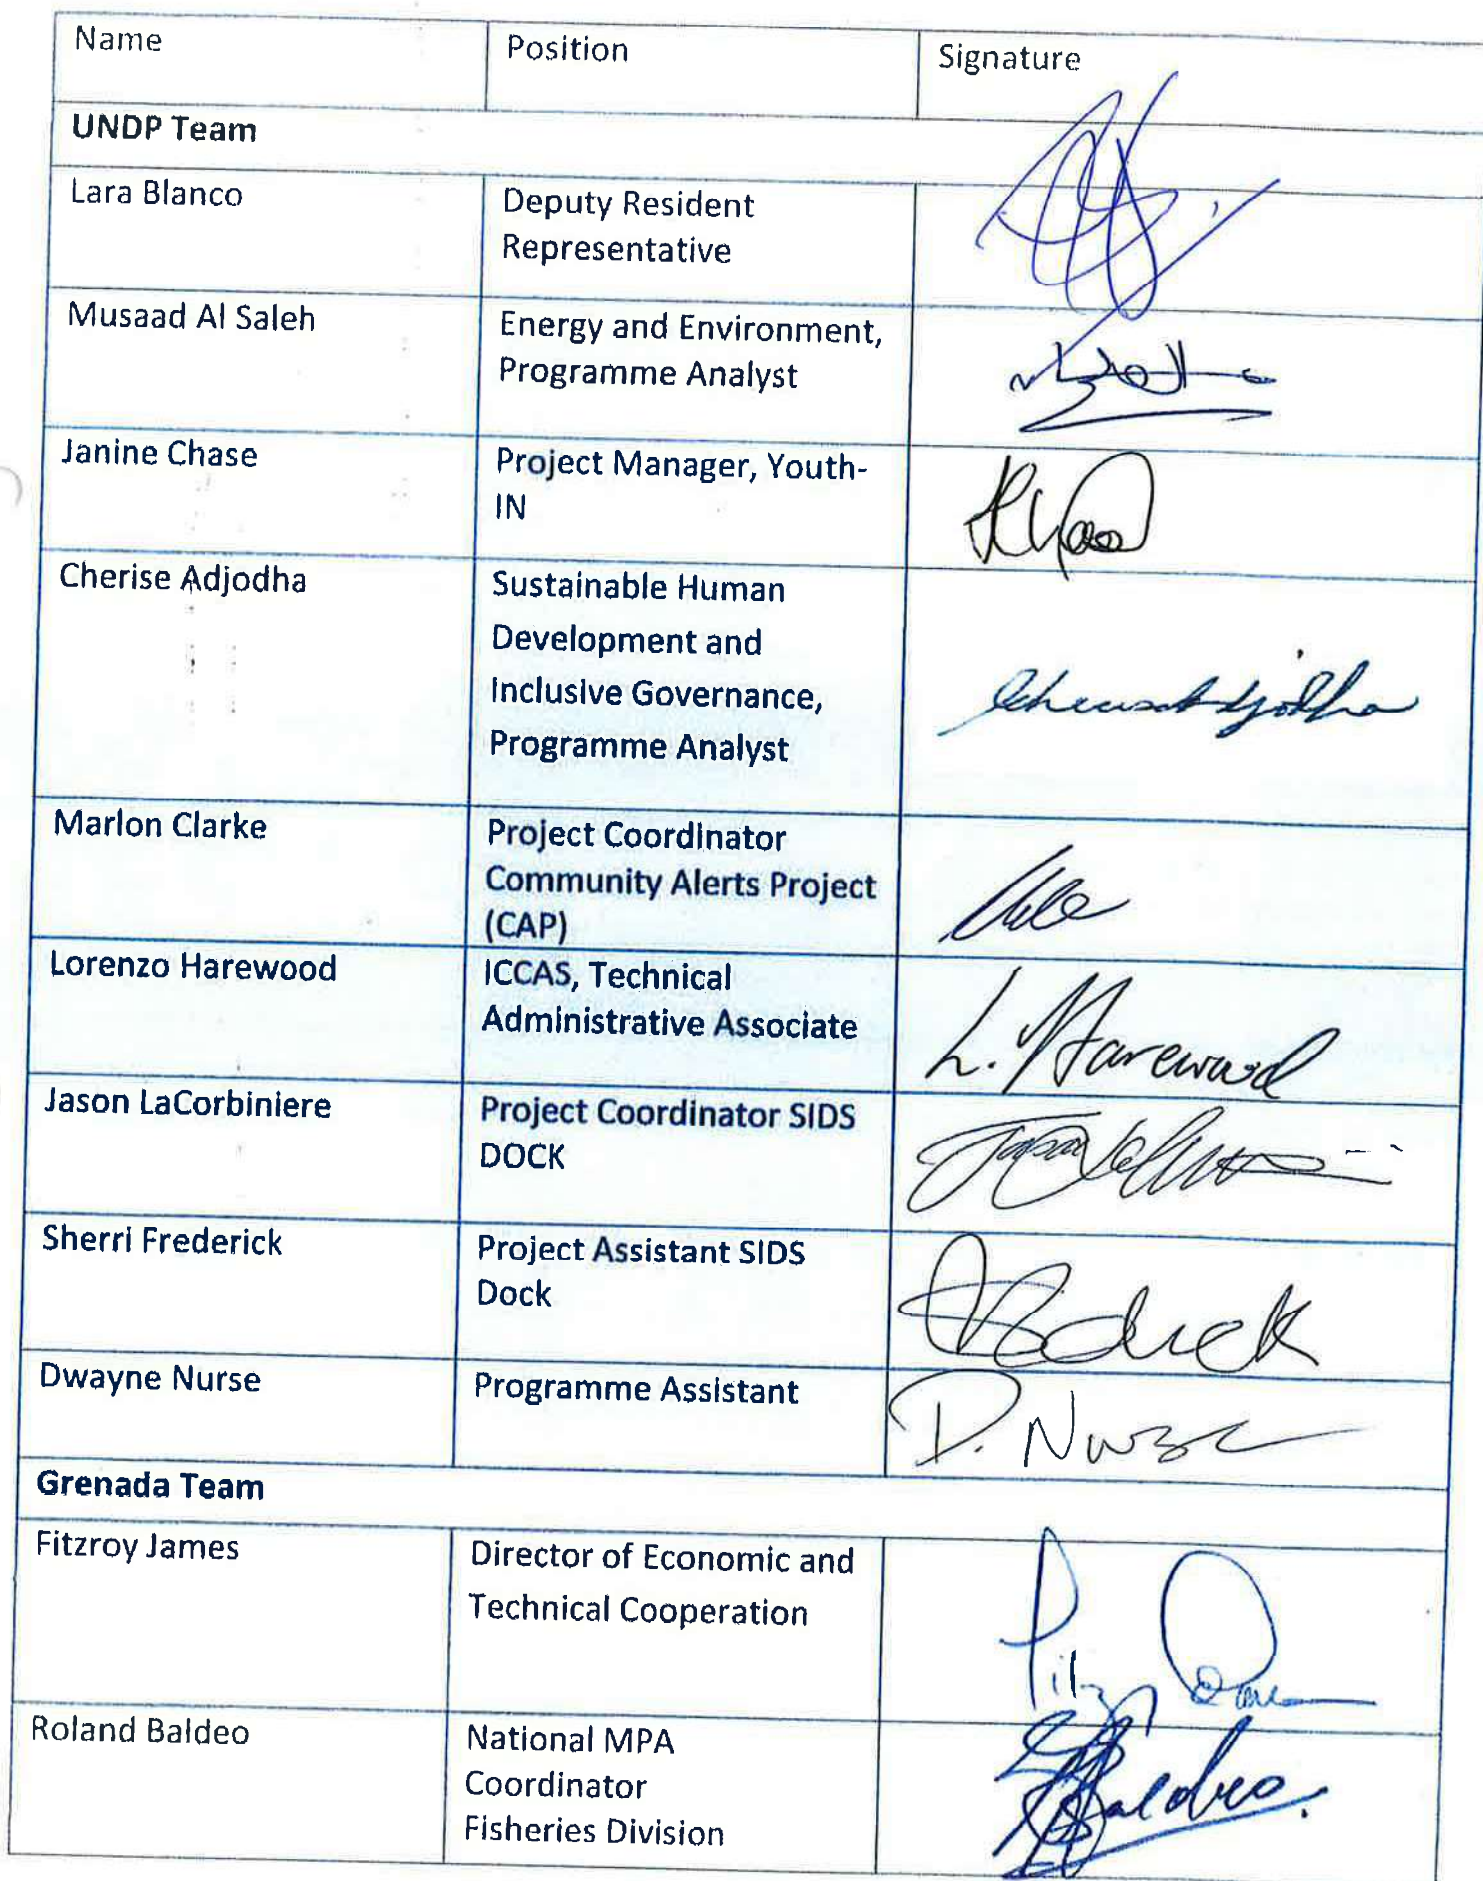 Name Position Signature
UNDP Team
Lara Blanco Deputy Resident
Representative
Musaad Al Saleh Energy and Environment,
Programme Analyst
Janine Chase Project Manager, Youth-
IN
Cherise Adjodha Sustainable Human
Development and
Inclusive Governance,
Programme Analyst
Cherise Adjodha
Marlon Clarke Project Coordinator
Community Alerts Project
(CAP)
Lorenzo Harewood ICCAS, Technical
Administrative Associate
L. Harewood
Jason LaCorbiniere Project Coordinator SIDS
DOCK
Sherri Frederick Project Assistant SIDS
Dock
Dwayne Nurse Programme Assistant
D. Nurse
Grenada Team
Fitzroy James Director of Economic and
Technical Cooperation
Roland Baldeo National MPA
Coordinator
Fisheries Division
Baldeo